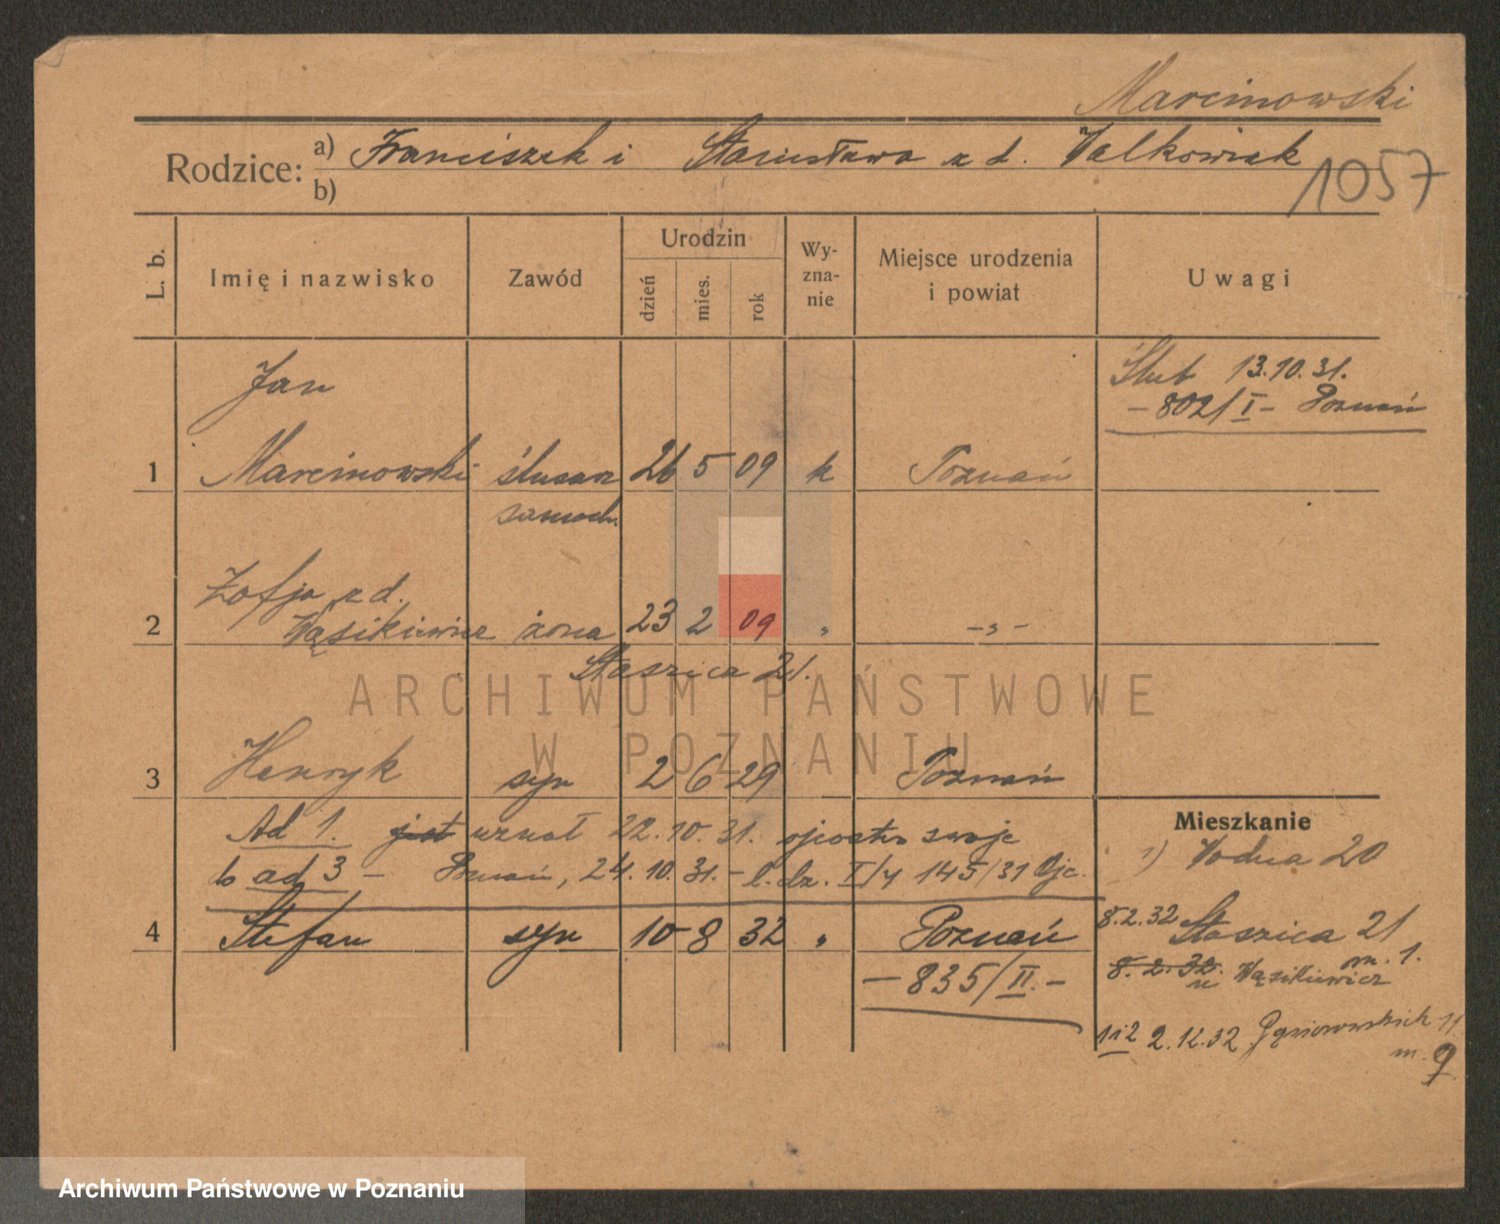 Marcinowski
Rodzice: a) Franciszek i Stanisława z d. Walkowiak
b)
1057
L. b.
Imię i nazwisko
Zawód
Urodzin
dzień
mies.
rok
Wy-
zna-
nie
Miejsce urodzenia
i powiat
Uwagi
Jan
Ślub 13.10.31.
- 802/I - Poznań
1 Marcinowski ślusarz 26 5 09 k Poznań
samoch.
Zofja z d.
2 Wąsikiewicz żona 23 2 09 " - " -
Staszica 21.
ARCHIWUM PAŃSTWOWE
W POZNANIU
3 Henryk syn 2 6 29 Poznań
Mieszkanie
Ad 1. jest uznał 22.10.31. ojcostwo swoje
1) Wodna 20
do ad 3 - Poznań, 24.10.31. - l. dz. I/4 145/31 Ojc.
4 Stefan syn 10 8 32 " Poznań
8.2.32 Staszica 21
m. 1.
8. 2. 32. u Wąsikiewicz
- 835/II. -
112 2.12.32. Gąsiorowskich 11
m. 9
Archiwum Państwowe w Poznaniu